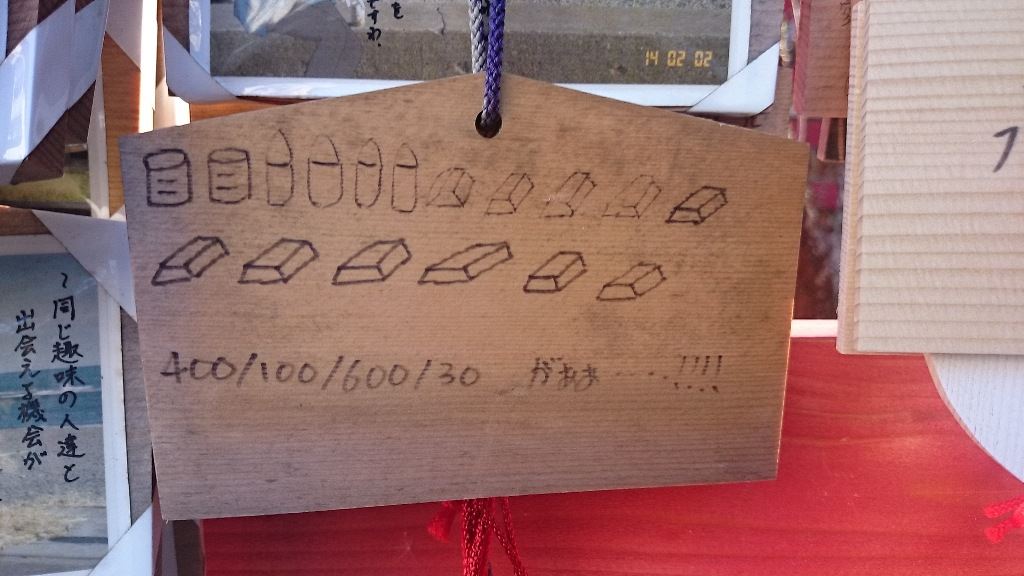 をですわ。
14 02 02
400/100/600/30 がぁぁ……!!!!
～同じ趣味の人達と
出会える機会が